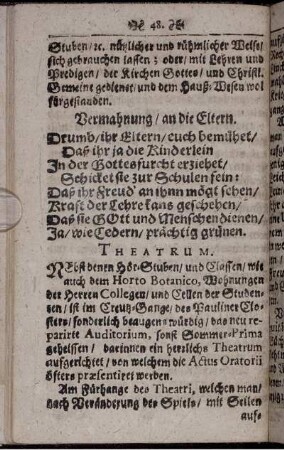 48.
Stuben/ ꝛc. nützlicher und rühmlicher Weise/
sich gebrauchen lassen; oder/ mit Lehren und
Predigen/ der Kirchen Gottes/ und Christl.
Gemeine gedienet/ und dem Hauß-Wesen wol
fürgestanden.
Vermahnung/ an die Eltern.
Drumb/ ihr Eltern/ euch bemühet/
Daß ihr ja die Kinderlein
In der Gottesfurcht erziehet/
Schicket sie zur Schulen fein:
Daß ihr Freud' an ihnn mögt sehen/
Kraft der Lehre kans geschehen/
Daß sie GOtt und Menschen dienen/
Ja/ wie Cedern/ prächtig grünen.
THEATRUM.
NEbst denen Hör-Stuben/ und Classen/ wie
auch dem Horto Botanico, Wohnungen
der Herren Collegen/ und Cellen der Studen-
ten/ ist im Creutz-Gange/ des Pauliner Clo-
sters/ sonderlich beaugenswürdig/ das neu re-
parirte Auditorium, sonst Sommer-Prima
geheissen/ darinnen ein herrlichs Theatrum
aufgerichtet/ von welchem die Actus Oratorii
öfters præsentiret werden.
Am Fürhange des Theatri, welchen man/
nach Veränderung des Spiels/ mit Seilen
auf-